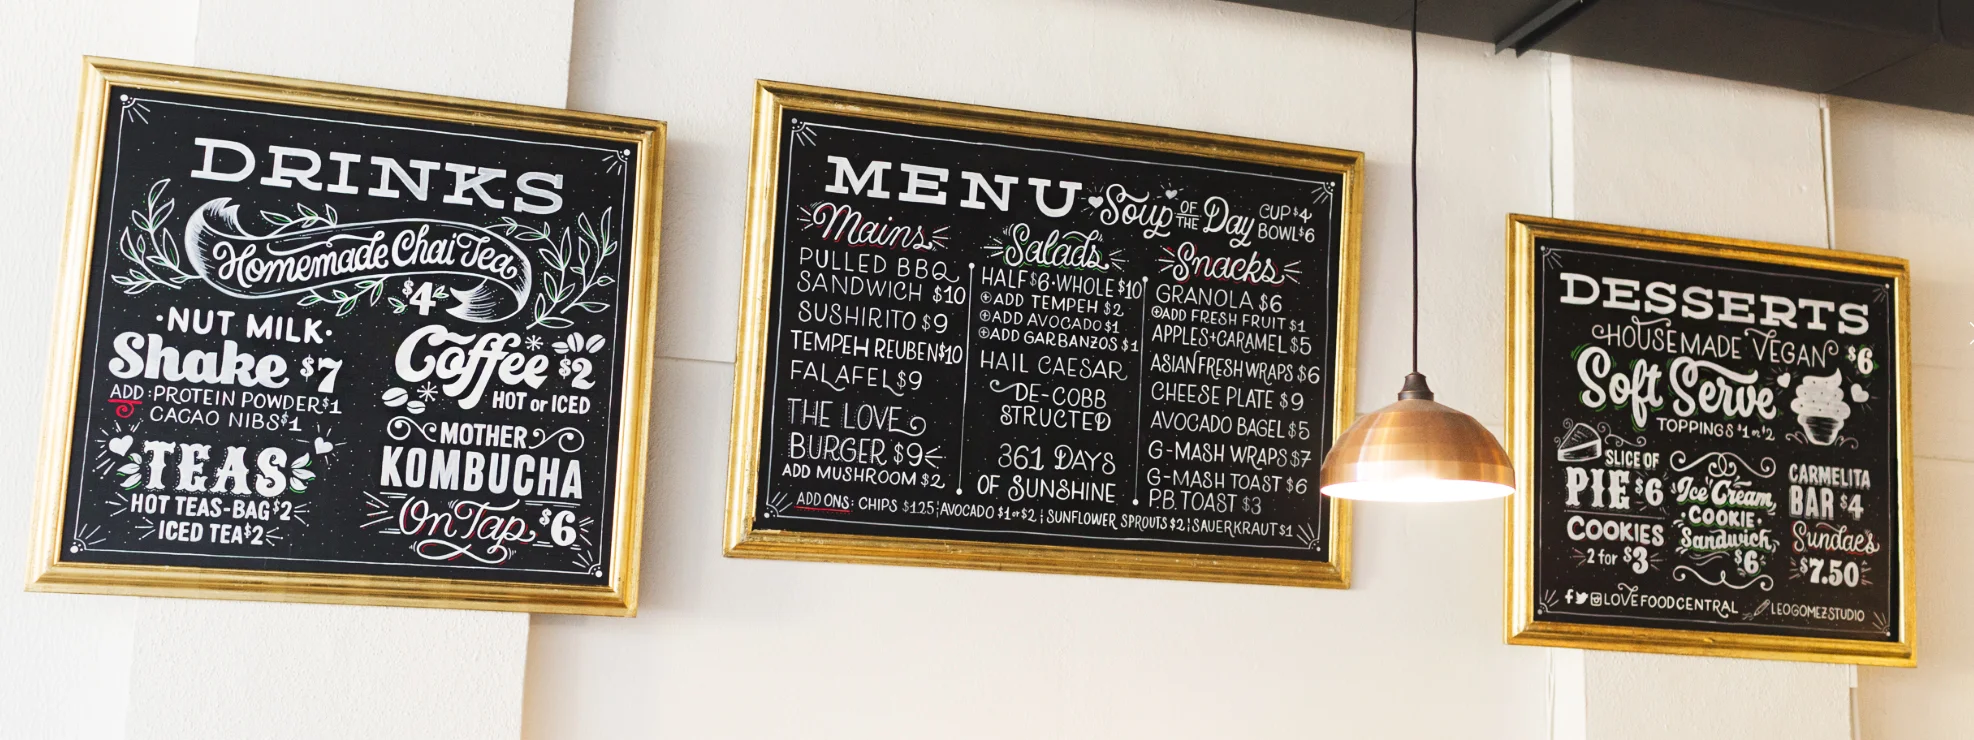 DRINKS
Homemade Chai Tea
$4
·NUT MILK·
Shake $7
ADD: PROTEIN POWDER $1
CACAO NIBS $1
TEAS
HOT TEAS-BAG $2
ICED TEA $2
Coffee $2
HOT or ICED
MOTHER
KOMBUCHA
On Tap $6
MENU
Soup OF THE Day
CUP $4
BOWL $6
Mains
PULLED BBQ
SANDWICH $10
SUSHIRITO $9
TEMPEH REUBEN $10
FALAFEL $9
THE LOVE
BURGER $9
ADD MUSHROOM $2
Salads
HALF $6 · WHOLE $10
⊕ADD TEMPEH $2
⊕ADD AVOCADO $1
⊕ADD GARBANZOS $1
HAIL CAESAR
DE-COBB
STRUCTED
361 DAYS
OF SUNSHINE
Snacks
GRANOLA $6
⊕ADD FRESH FRUIT $1
APPLES+CARAMEL $5
ASIAN FRESH WRAPS $6
CHEESE PLATE $9
AVOCADO BAGEL $5
G-MASH WRAPS $7
G-MASH TOAST $6
P.B. TOAST $3
ADD ONS: CHIPS $1.25 ¦ AVOCADO $1 or $2 ¦ SUNFLOWER SPROUTS $2 ¦ SAUERKRAUT $1
DESSERTS
HOUSEMADE VEGAN $6
Soft Serve
TOPPINGS $1 or $2
SLICE OF
PIE $6
COOKIES
2 for $3
Ice Cream
COOKIE
Sandwich
$6
CARMELITA
BAR $4
Sundaes
$7.50
LOVEFOODCENTRAL
LEOGOMEZSTUDIO